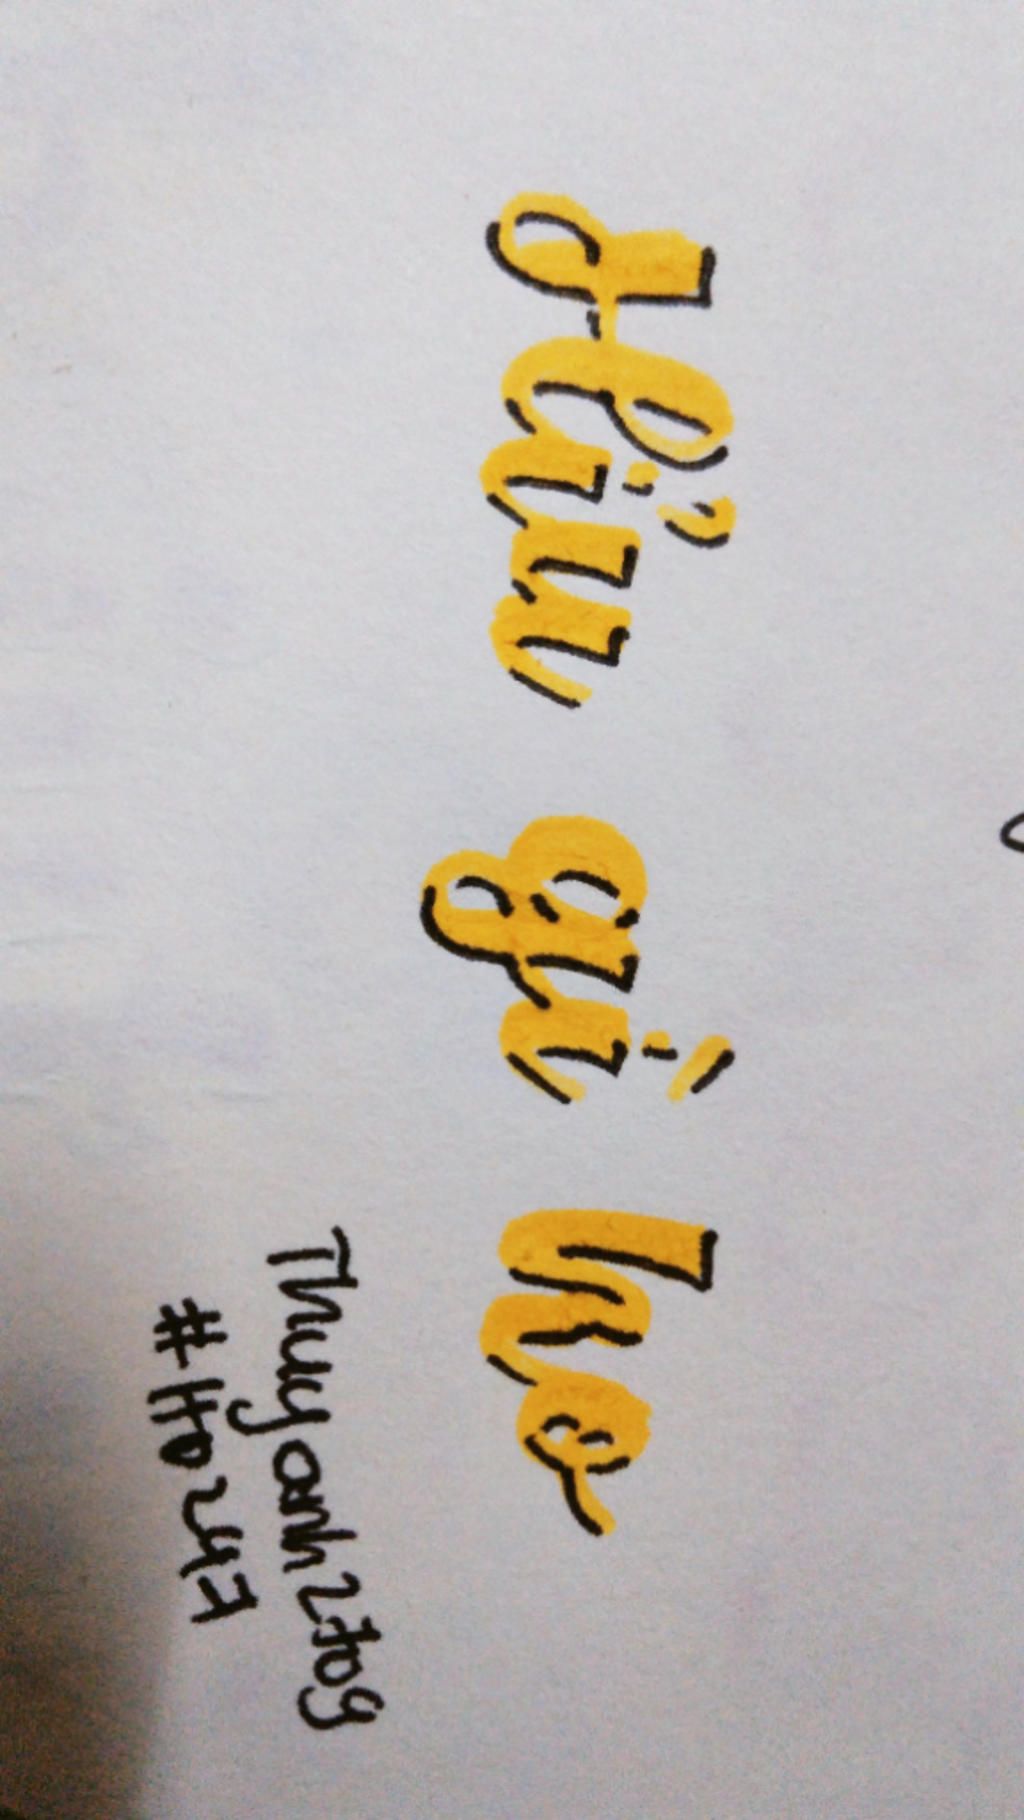 Hỉu gì ho
Thuyanh2709
#Ho247